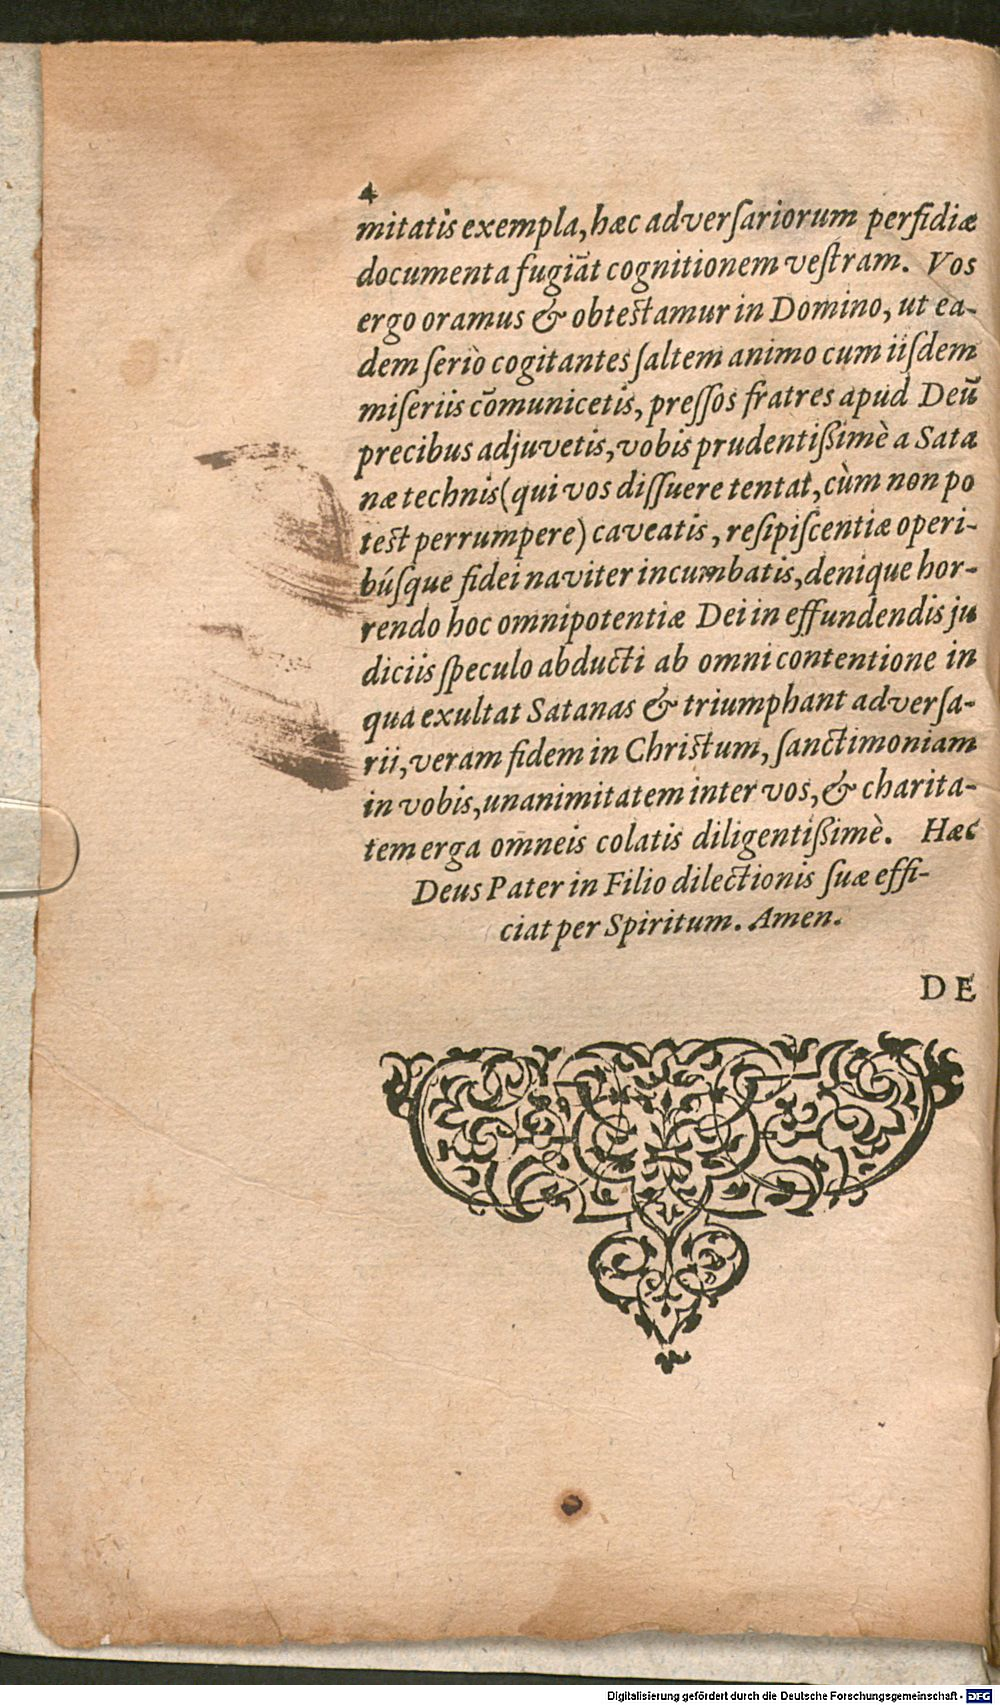 4
mitatis exempla, hæc adverſariorum perfidiæ
documenta fugiãt cognitionem veſtram. Vos
ergo oramus & obteſtamur in Domino, ut ea-
dem ſeriò cogitantes ſaltem animo cum iiſdem
miſeriis cõmunicetis, preſſos fratres apud Deũ
precibus adjuvetis, vobis prudentiſſimè a Sata
næ technis (qui vos diſſuere tentat, cùm non po
teſt perrumpere) caveatis, reſipiſcentiæ operi-
búſque fidei naviter incumbatis, denique hor-
rendo hoc omnipotentiæ Dei in effundendis ju
diciis ſpeculo abducti ab omni contentione in
qua exultat Satanas & triumphant adverſa-
rii, veram fidem in Chriſtum, ſanctimoniam
in vobis, unanimitatem inter vos, & charita-
tem erga omneis colatis diligentiſſimè. Hæc
Deus Pater in Filio dilectionis ſuæ effi-
ciat per Spiritum. Amen.
DE
Digitalisierung gefördert durch die Deutsche Forschungsgemeinschaft - DFG